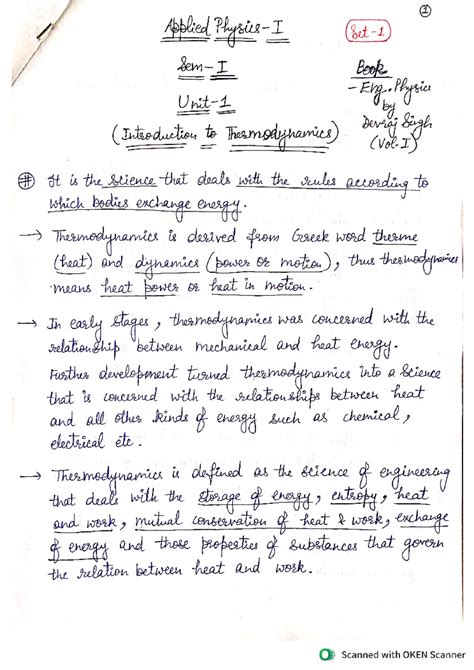 1
Applied Physics-I
Set-1
Sem-I
Unit-1
(Introduction to Thermodynamics)
Book
- Eng. Physics
by
Devraj Singh
(Vol. I)
# It is the science that deals with the rules according to
which bodies exchange energy.
→ Thermodynamics is derived from Greek word therme
(heat) and dynamics (power or motion), thus thermodynamics
means heat power or heat in motion.
→ In early stages, thermodynamics was concerned with the
relationship between mechanical and heat energy.
Further development turned thermodynamics into a science
that is concerned with the relationships between heat
and all other kinds of energy such as chemical,
electrical etc.
→ Thermodynamics is defined as the science of engineering
that deals with the storage of energy, entropy, heat
and work, mutual conservation of heat & work, exchange
of energy and those properties of substances that govern
the relation between heat and work.
Scanned with OKEN Scanner